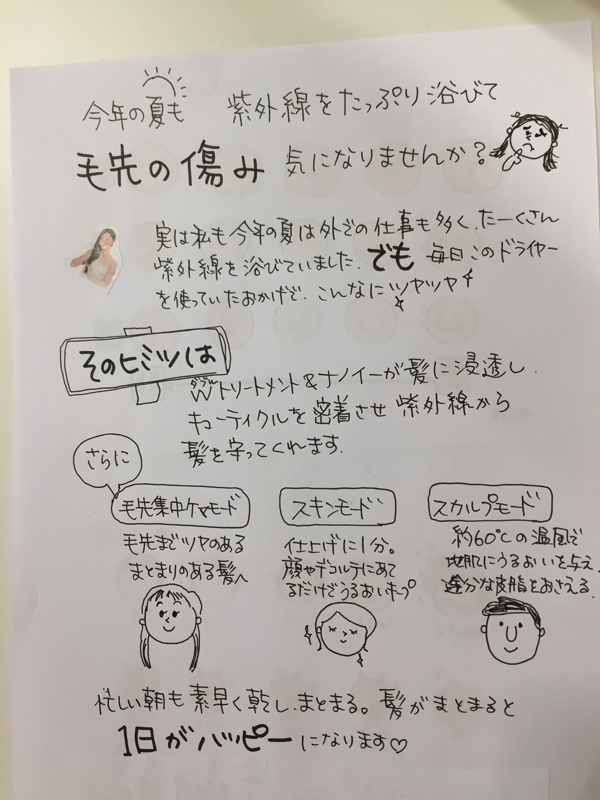 今年の夏も 紫外線をたっぷり浴びて
毛先の傷み 気になりませんか?
実は私も今年の夏は外での仕事も多く、たーくさん
紫外線を浴びていました。でも 毎日このドライヤー
を使っていたおかげで、こんなにツヤツヤ
そのヒミツは
ダブル
Wトリートメント&ナノイーが髪に浸透し、
キューティクルを密着させ 紫外線から
髪を守ってくれます。
さらに
毛先集中ケアモード
毛先までツヤのある
まとまりのある髪へ
スキンモード
仕上げに1分。
顔やデコルテにあて
るだけでうるおいキープ
スカルプモード
約60℃の温風で
地肌にうるおいを与え、
過分な皮脂をおさえる。
忙しい朝も素早く乾し、まとまる。髪がまとまると
1日がハッピーになります♡